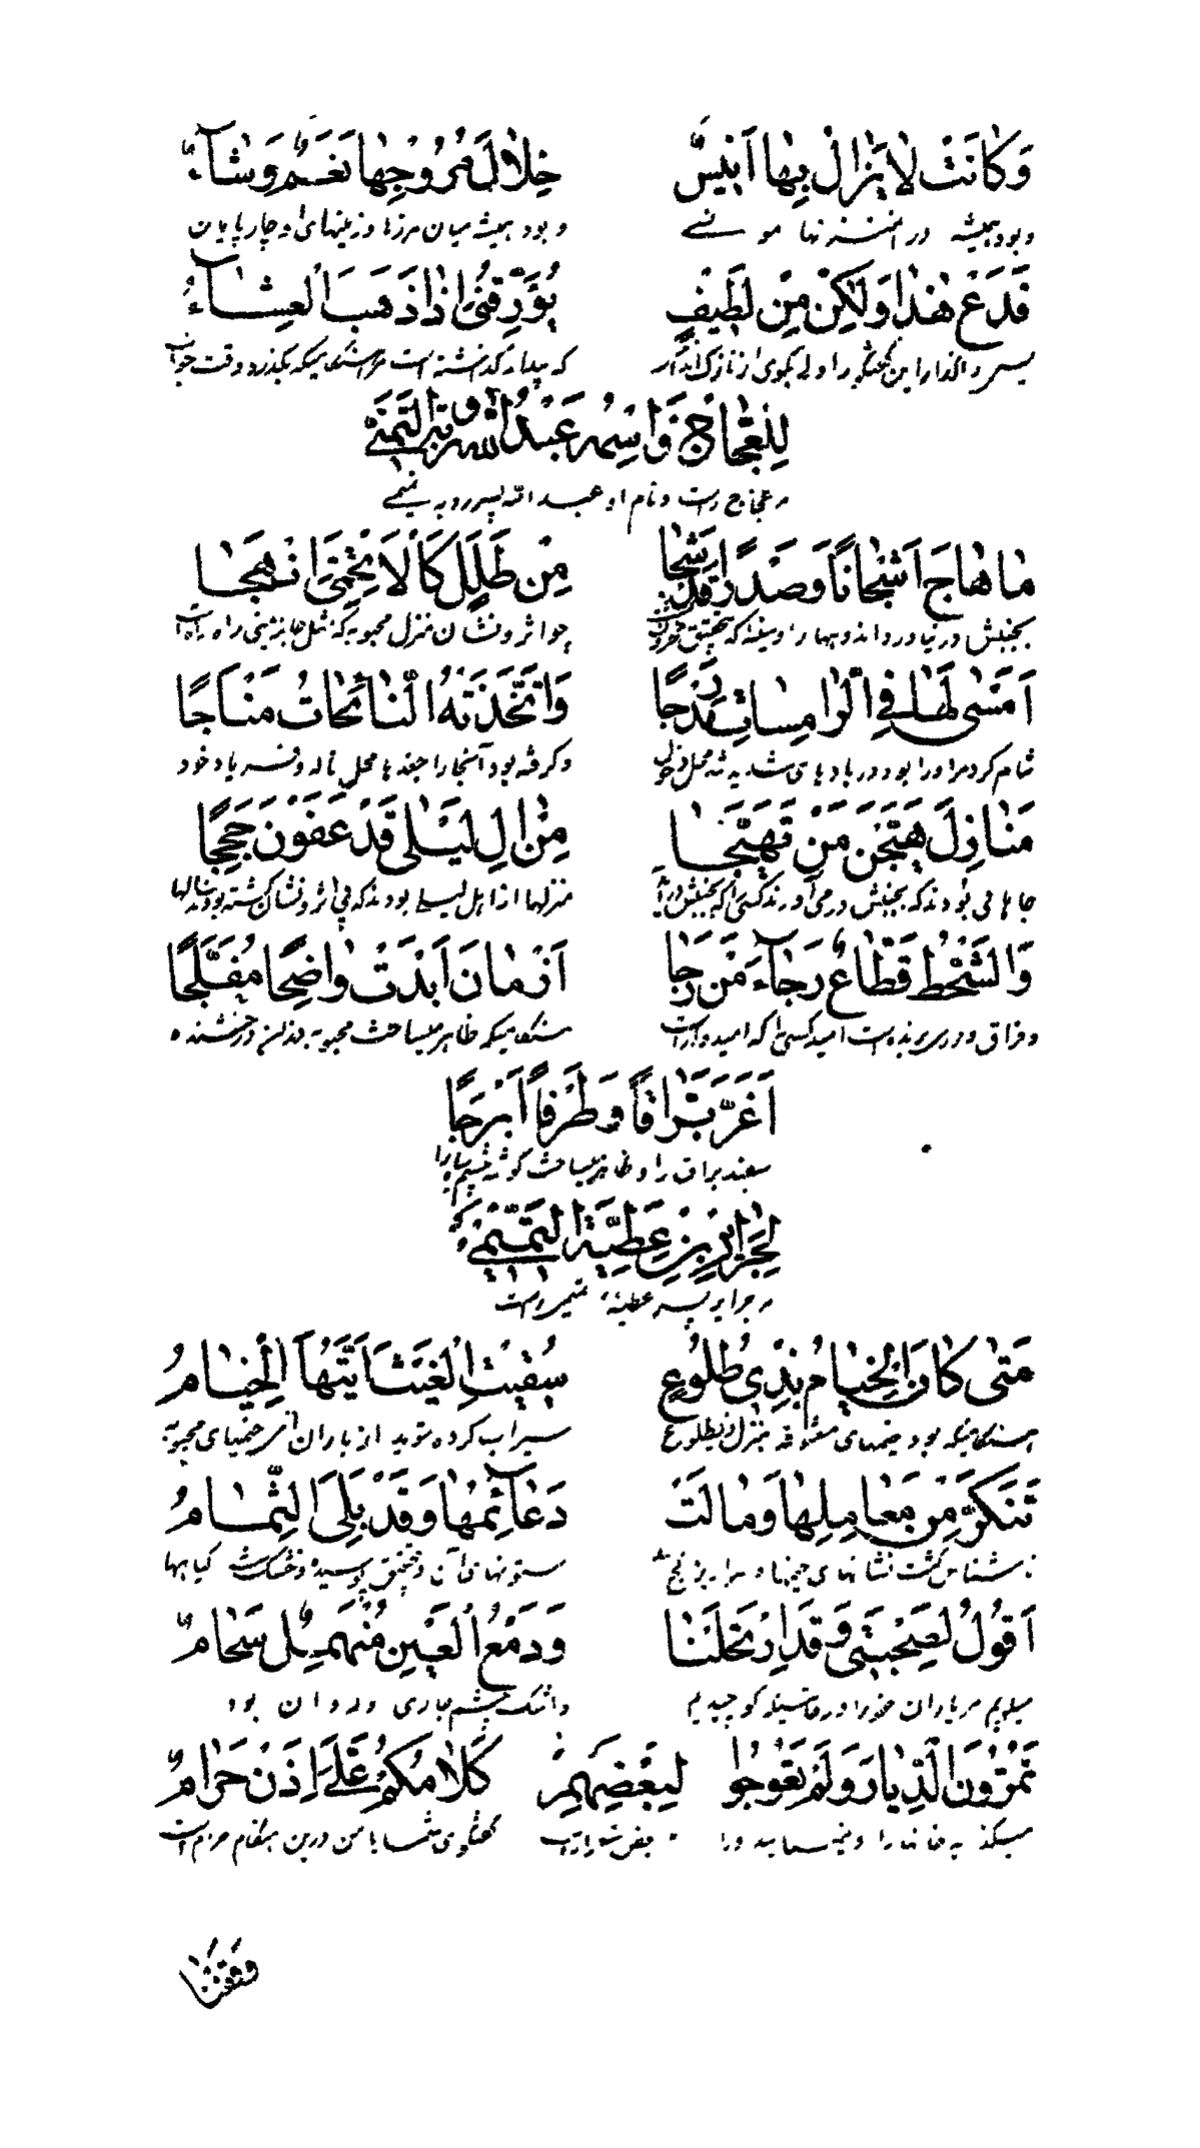 وَكَانَتْ لَا يَزَالُ بِهَا اَنِيسٌ خِلَالَ مُرُوجِهَا نَعَمٌ وَشَآءٌ
و بود همیشه در مو نسے و بود همیشه میان مرزها و زمینهای او چارپایان
فَدَعْ هٰذَا وَلٰكِنْ مِنْ لَطِيفٍ يُؤَرِّقُنِي اِذَا ذَهَبَ الْعِشَآءُ
را ولی بگوی از که بیدار وقت
لِلْعَجَّاجِ وَاسْمُهُ عَبْدُ اللّٰهِ التَّمِيمِيّ
عجاج و نام او عبد الله پسر روبه تمیمی
مَا هَاجَ اَشْجَانًا وَصَدْرًا قَدْ شَجَا مِنْ طَلَلٍ كَالْاَتْحَمِيِّ اَنْهَجَا
بجنبش در و اندوهها را و سینه که و نشان منزل محبوبه که مثل
اَمْسٰى لَهَا فِي الرَّامِسَاتِ مَدْرَجًا وَاتَّخَذَتْهُ النَّائِحَاتُ مَنَاجًا
شام کرد مر او را بود در بادهای شدید و گرفته بود آنجا را محل ناله و فریاد خود
مَنَازِلَ هَيَّجْنَ مَنْ تَهَيَّجَا مِنْ اٰلِ لَيْلٰى قَدْ عَفَوْنَ حِجَجًا
جاهائی بودند که بجنبش در می آورند کسی را که منزلها از اهل لیلے بودند که بی اثر و نشان گشته بودند سالها
وَالشَّحْطُ قَطَّاعٌ رَجَآءَ مَنْ رَجَا اَزْمَانَ اَبْدَتْ وَاضِحًا مُفَلَّجًا
و فراق و دوری برنده است امید کسی را که امیدوار است هنگامیکه ظاهر میساخت محبوبه درخشنده
اَغَرَّ بَرَّاقًا وَطَرْفًا اَبْرَجًا
سفید براق را و ظاهر میساخت گوشه چشم
لِجَرِيرِ بْنِ عَطِيَّةَ التَّمِيمِيّ
جریر پسر عطیه تمیمی است
مَتٰى كَانَ الْخِيَامُ بِذِي طُلُوعٍ سُقِيتِ الْغَيْثَ اَيَّتُهَا الْخِيَامُ
هنگامیکه بود خیمهای معشوقه بمنزل ذی طلوع سیراب کرده شوید از باران ای خیمهای محبوبه
تَنَكَّرَ مِنْ مَعَامِلِهَا وَمَالَتْ دَعَآئِمُهَا وَقَدْ بَلِيَ الثُّمَامُ
گشت نشانهای خیمها و ستونهای آن و بتحقیق پوسیده و خشک گیاهها
اَقُولُ لِصُحْبَتِي وَقَدِ ارْتَحَلْنَا وَدَمْعُ الْعَيْنِ مُنْهَمِلٌ سَجَامٌ
میگویم مر یاران خود را در حالتیکه کوچیدیم و اشک چشم جاری و روان بود
تَمُرُّونَ الدِّيَارَ وَلَمْ تَعُوجُوا لِبَعْضِهِمْ كَلَامُكُمْ عَلَيَّ اِذَنْ حَرَامٌ
میگذرید خانها را و بعض شعرا راست گفتگوی شما با من درین هنگام حرام است
وَقَفْنَا